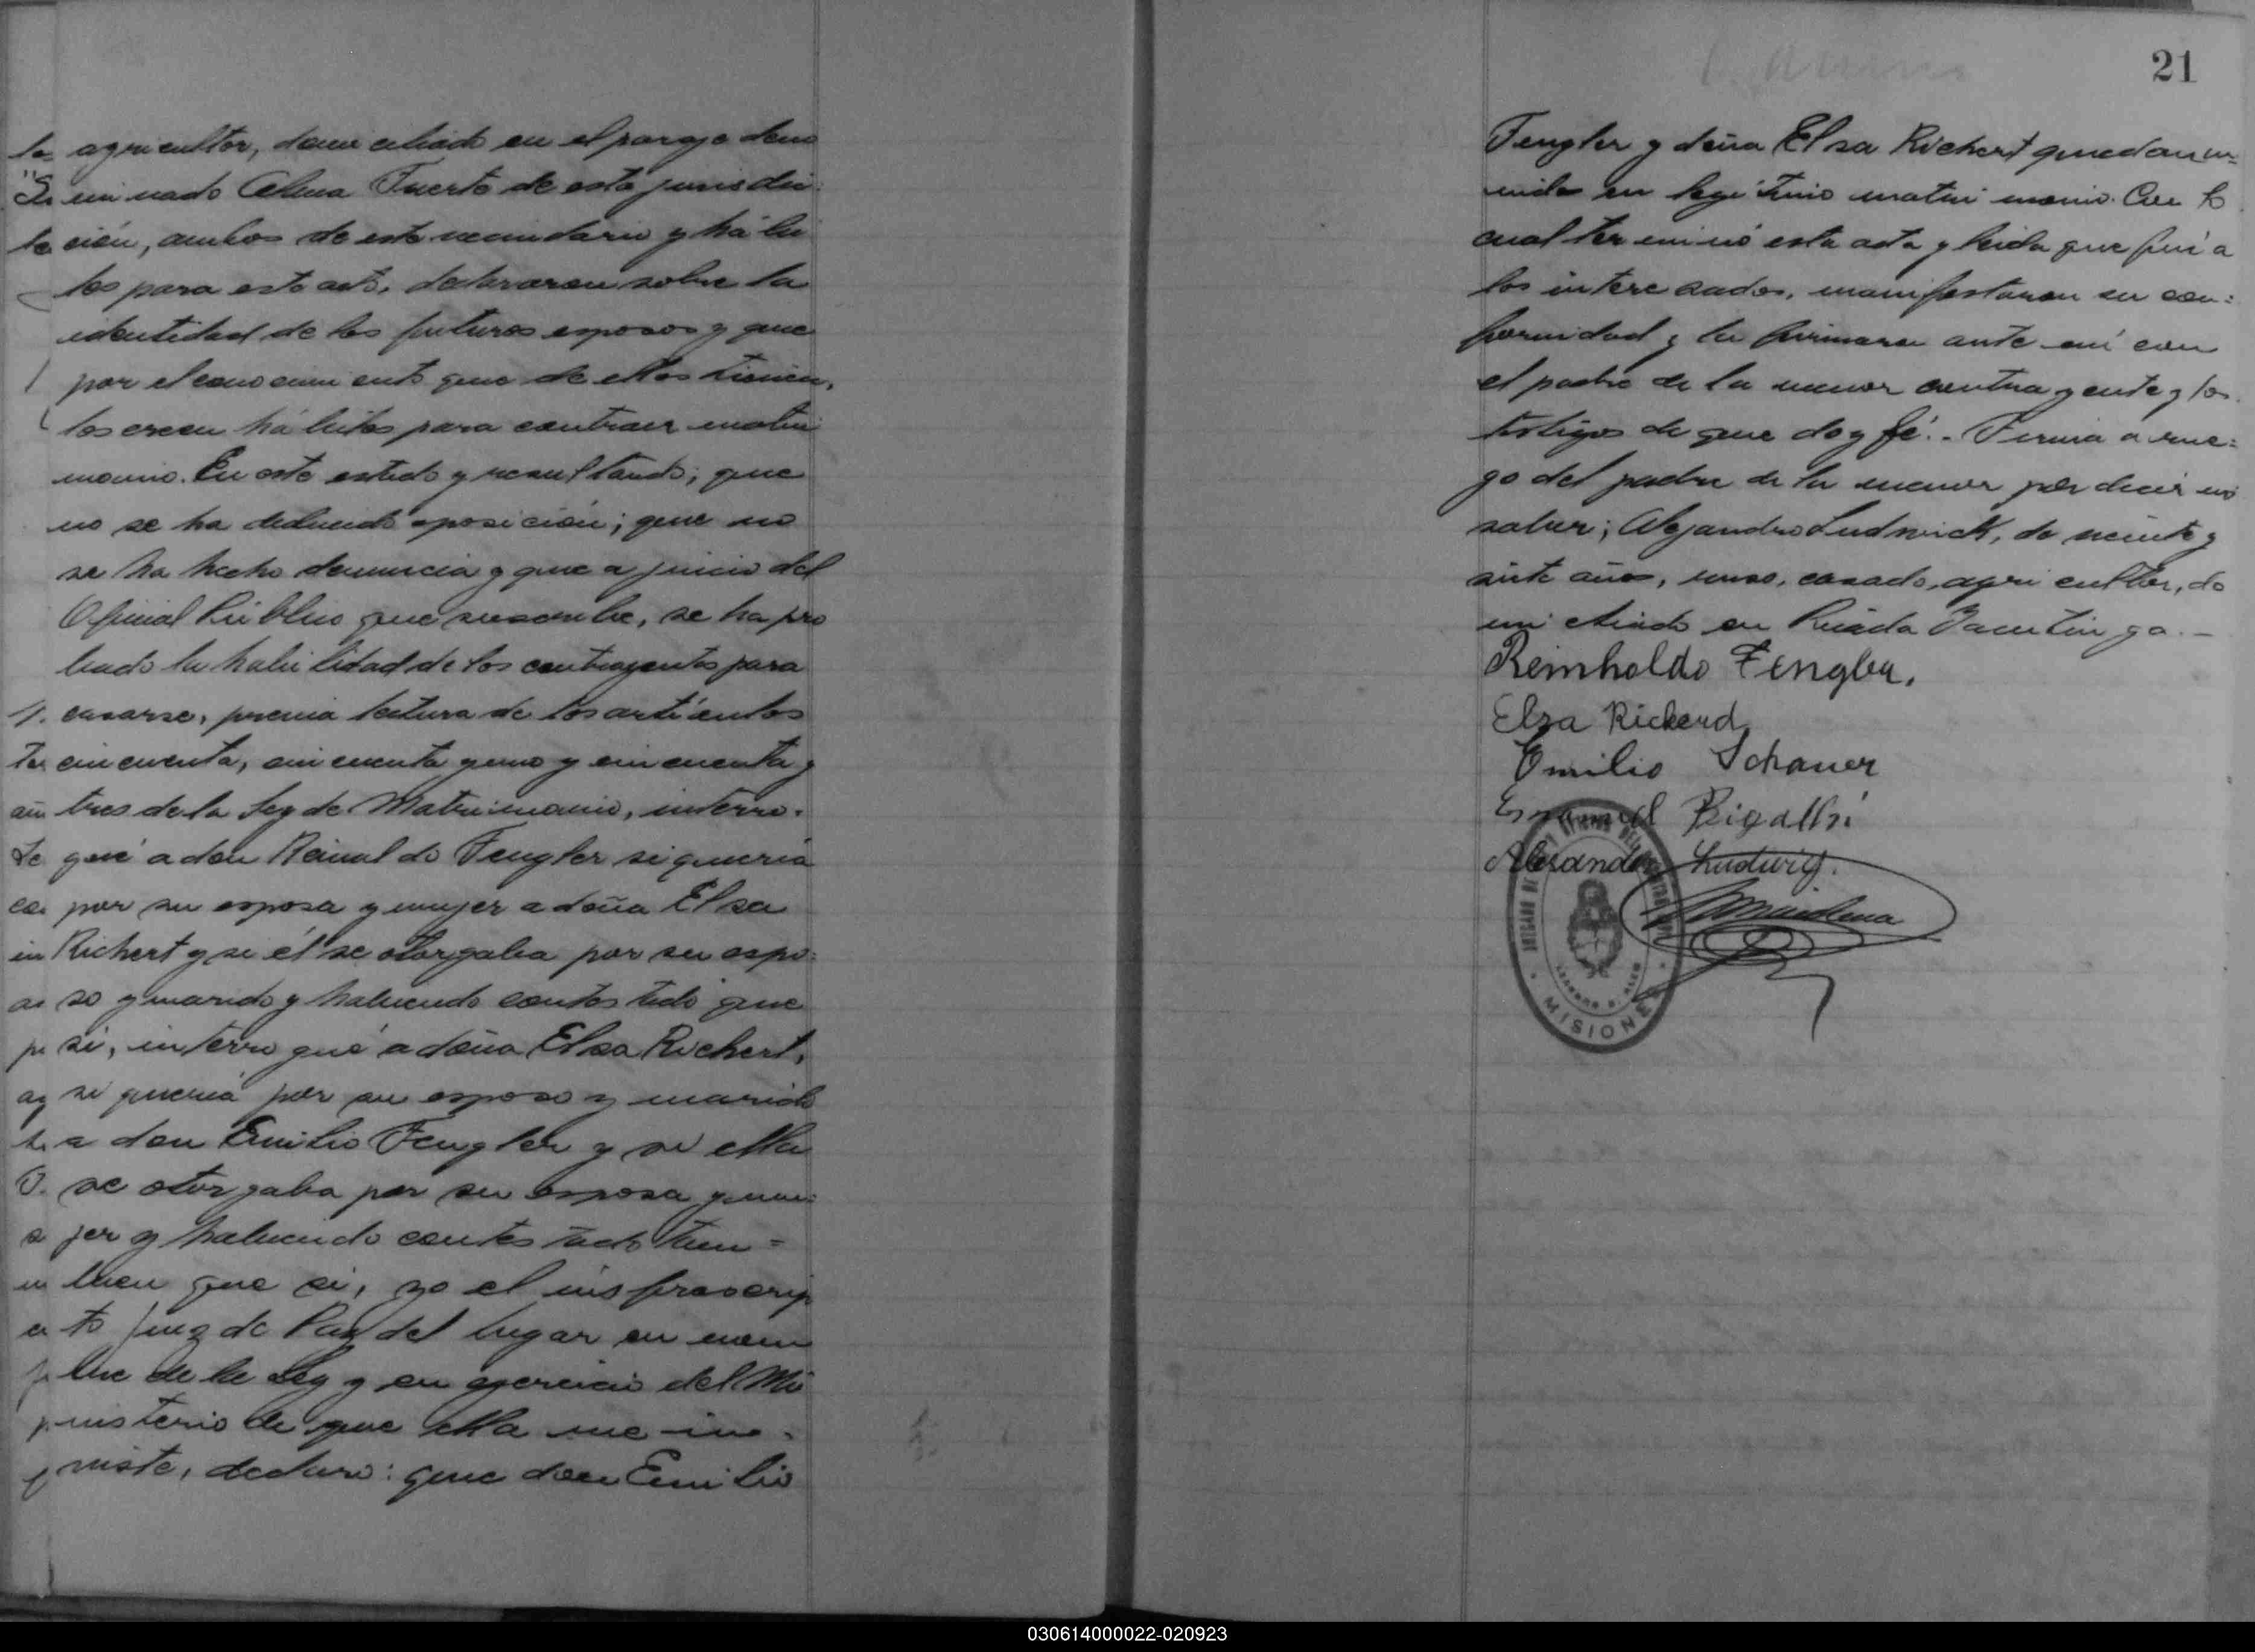 agricultor, domiciliado en el paraje deno
minado Alma Fuerte de esta jurisdic-
ción, ambos de este vecindario y hábi
les para este acto, declararon sobre la
identidad de los futuros esposos y que
por el conocimiento que de ellos tienen,
los creen hábiles para contraer matri
monio. En este estado y resultando; que
no se ha deducido oposición; que no
se ha hecho denuncia y que a juicio del
Oficial Público que suscribe, se ha pro
bado la habilidad de los contrayentes para
casarse, previa lectura de los artículos
cincuenta, cincuenta y uno y cincuenta y
tres de la Ley de Matrimonio, interro-
gué a don Reinaldo Fengler si quería
por su esposa y mujer a doña Elsa
Richert y si él se otorgaba por su espo-
so y marido y habiendo contestado que
si, interrogué a doña Elsa Richert,
si quería por su esposo y marido
a don Emilio Fengler y si ella
se otorgaba por su esposa y mu-
jer y habiendo contestado tam=
bien que si, yo el insfrascrip
to Juez de Paz del lugar en nom
bre de la Ley y en ejercicio del Mi
nisterio de que ella me in-
viste, declaro: que don Emilio
21
Fengler y doña Elsa Richert quedan u-
nidos en legítimo matrimonio. Con lo
cual terminó esta acta y leida que fué a
los interesados, manifestaron su con-
formidad y la firmaron ante mí con
el padre de la menor contrayente y los
testigos de que doy fé.- Firma a rue-
go del padre de la menor por decir no
saber; Alejandro Ludwick, de veinte y
siete años, ruso, casado, agricultor, do
miciliado en Picada Yacutinga.-
Reinholdo Fengler.
Elsa Rickerd
Emilio Schauer
Alexander Ludwig.
MISIONES
030614000022-020923